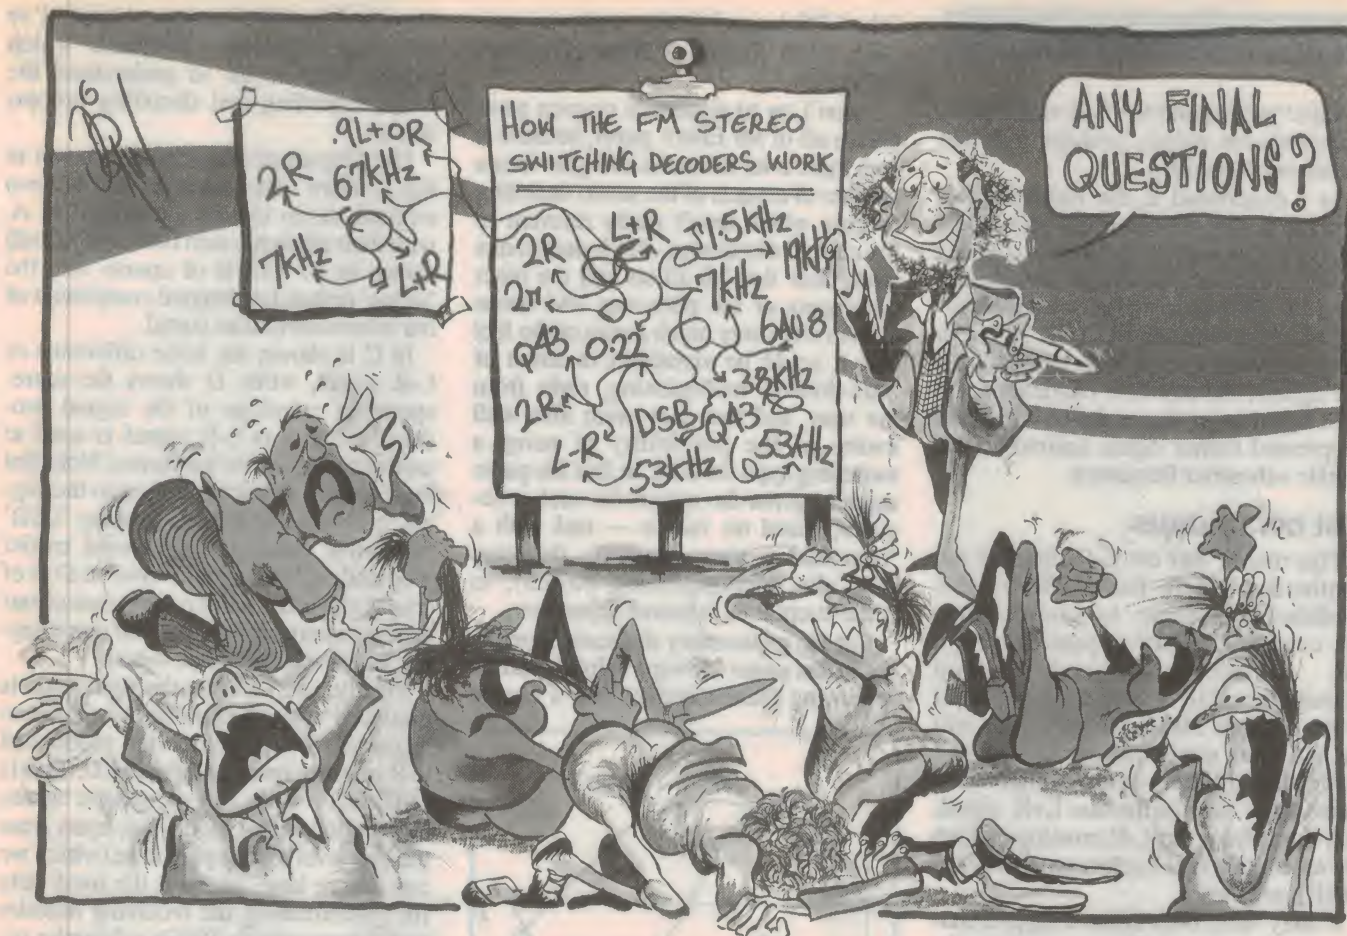 .9L+0R
2R
67kHz
7kHz
L+R
HOW THE FM STEREO
SWITCHING DECODERS WORK
L+R
1.5kHz
2R
19kHz
7kHz
2π
6AU8
Q43
0.22
38kHz
2R
DSB
Q43
L-R
53kHz
53kHz
ANY FINAL
QUESTIONS?